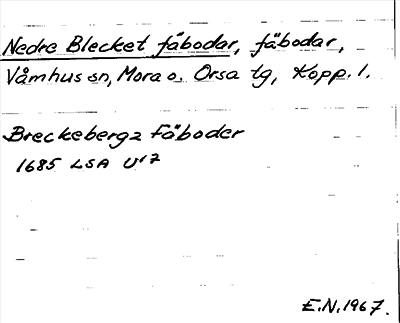 Nedre Blecket fäbodar, fäbodar,
Våmhus sn, Mora o. Orsa tg, Kopp. l.
Breckeberga Fäboder
1685 LSA U17
E.N. 1967.